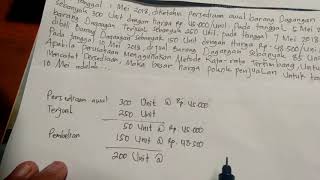 Tanggal 1 Mei 2018, diketahui Persediaan awal barang Dagangan
Sebanyak 300 Unit dengan harga Rp 45.000/unit. Pada tanggal 5 Mei
barang Dagangan Terjual Sebanyak 250 Unit. Pada tanggal 7 Mei 2018
dibeli barang Dagangan Sebanyak 150 Unit dengan harga Rp 48.500/unit
Pada tanggal 10 Mei 2018, dijual Barang Dagangan Sebanyak 85 Unit
Apabila Perusahaan Menggunakan Metode Rata-rata Tertimbang Untuk
Persediaan, Maka besar harga Pokok Penjualan Untuk
10 Mei adalah...
Persediaan awal 300 Unit @ Rp 45.000
Terjual 250 Unit
50 Unit @ Rp 45.000
Pembelian 150 Unit @ Rp 48.500
200 Unit @